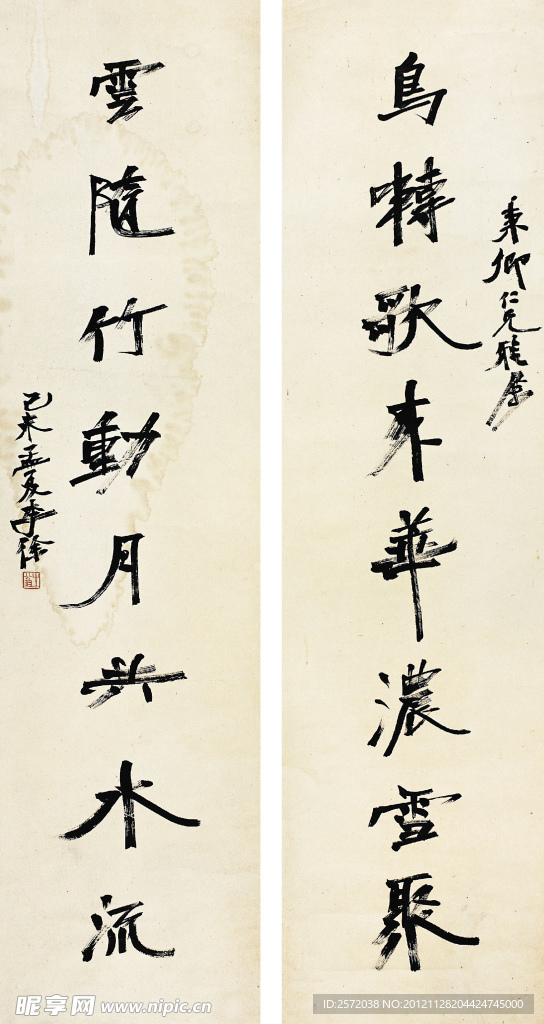 仁兄雅屬
鳥囀歌來華濃雪聚
雲隨竹動月共水流
己未孟夏李徐
昵享网 www.nipic.cn
ID:2572038 NO:20121126204424745000